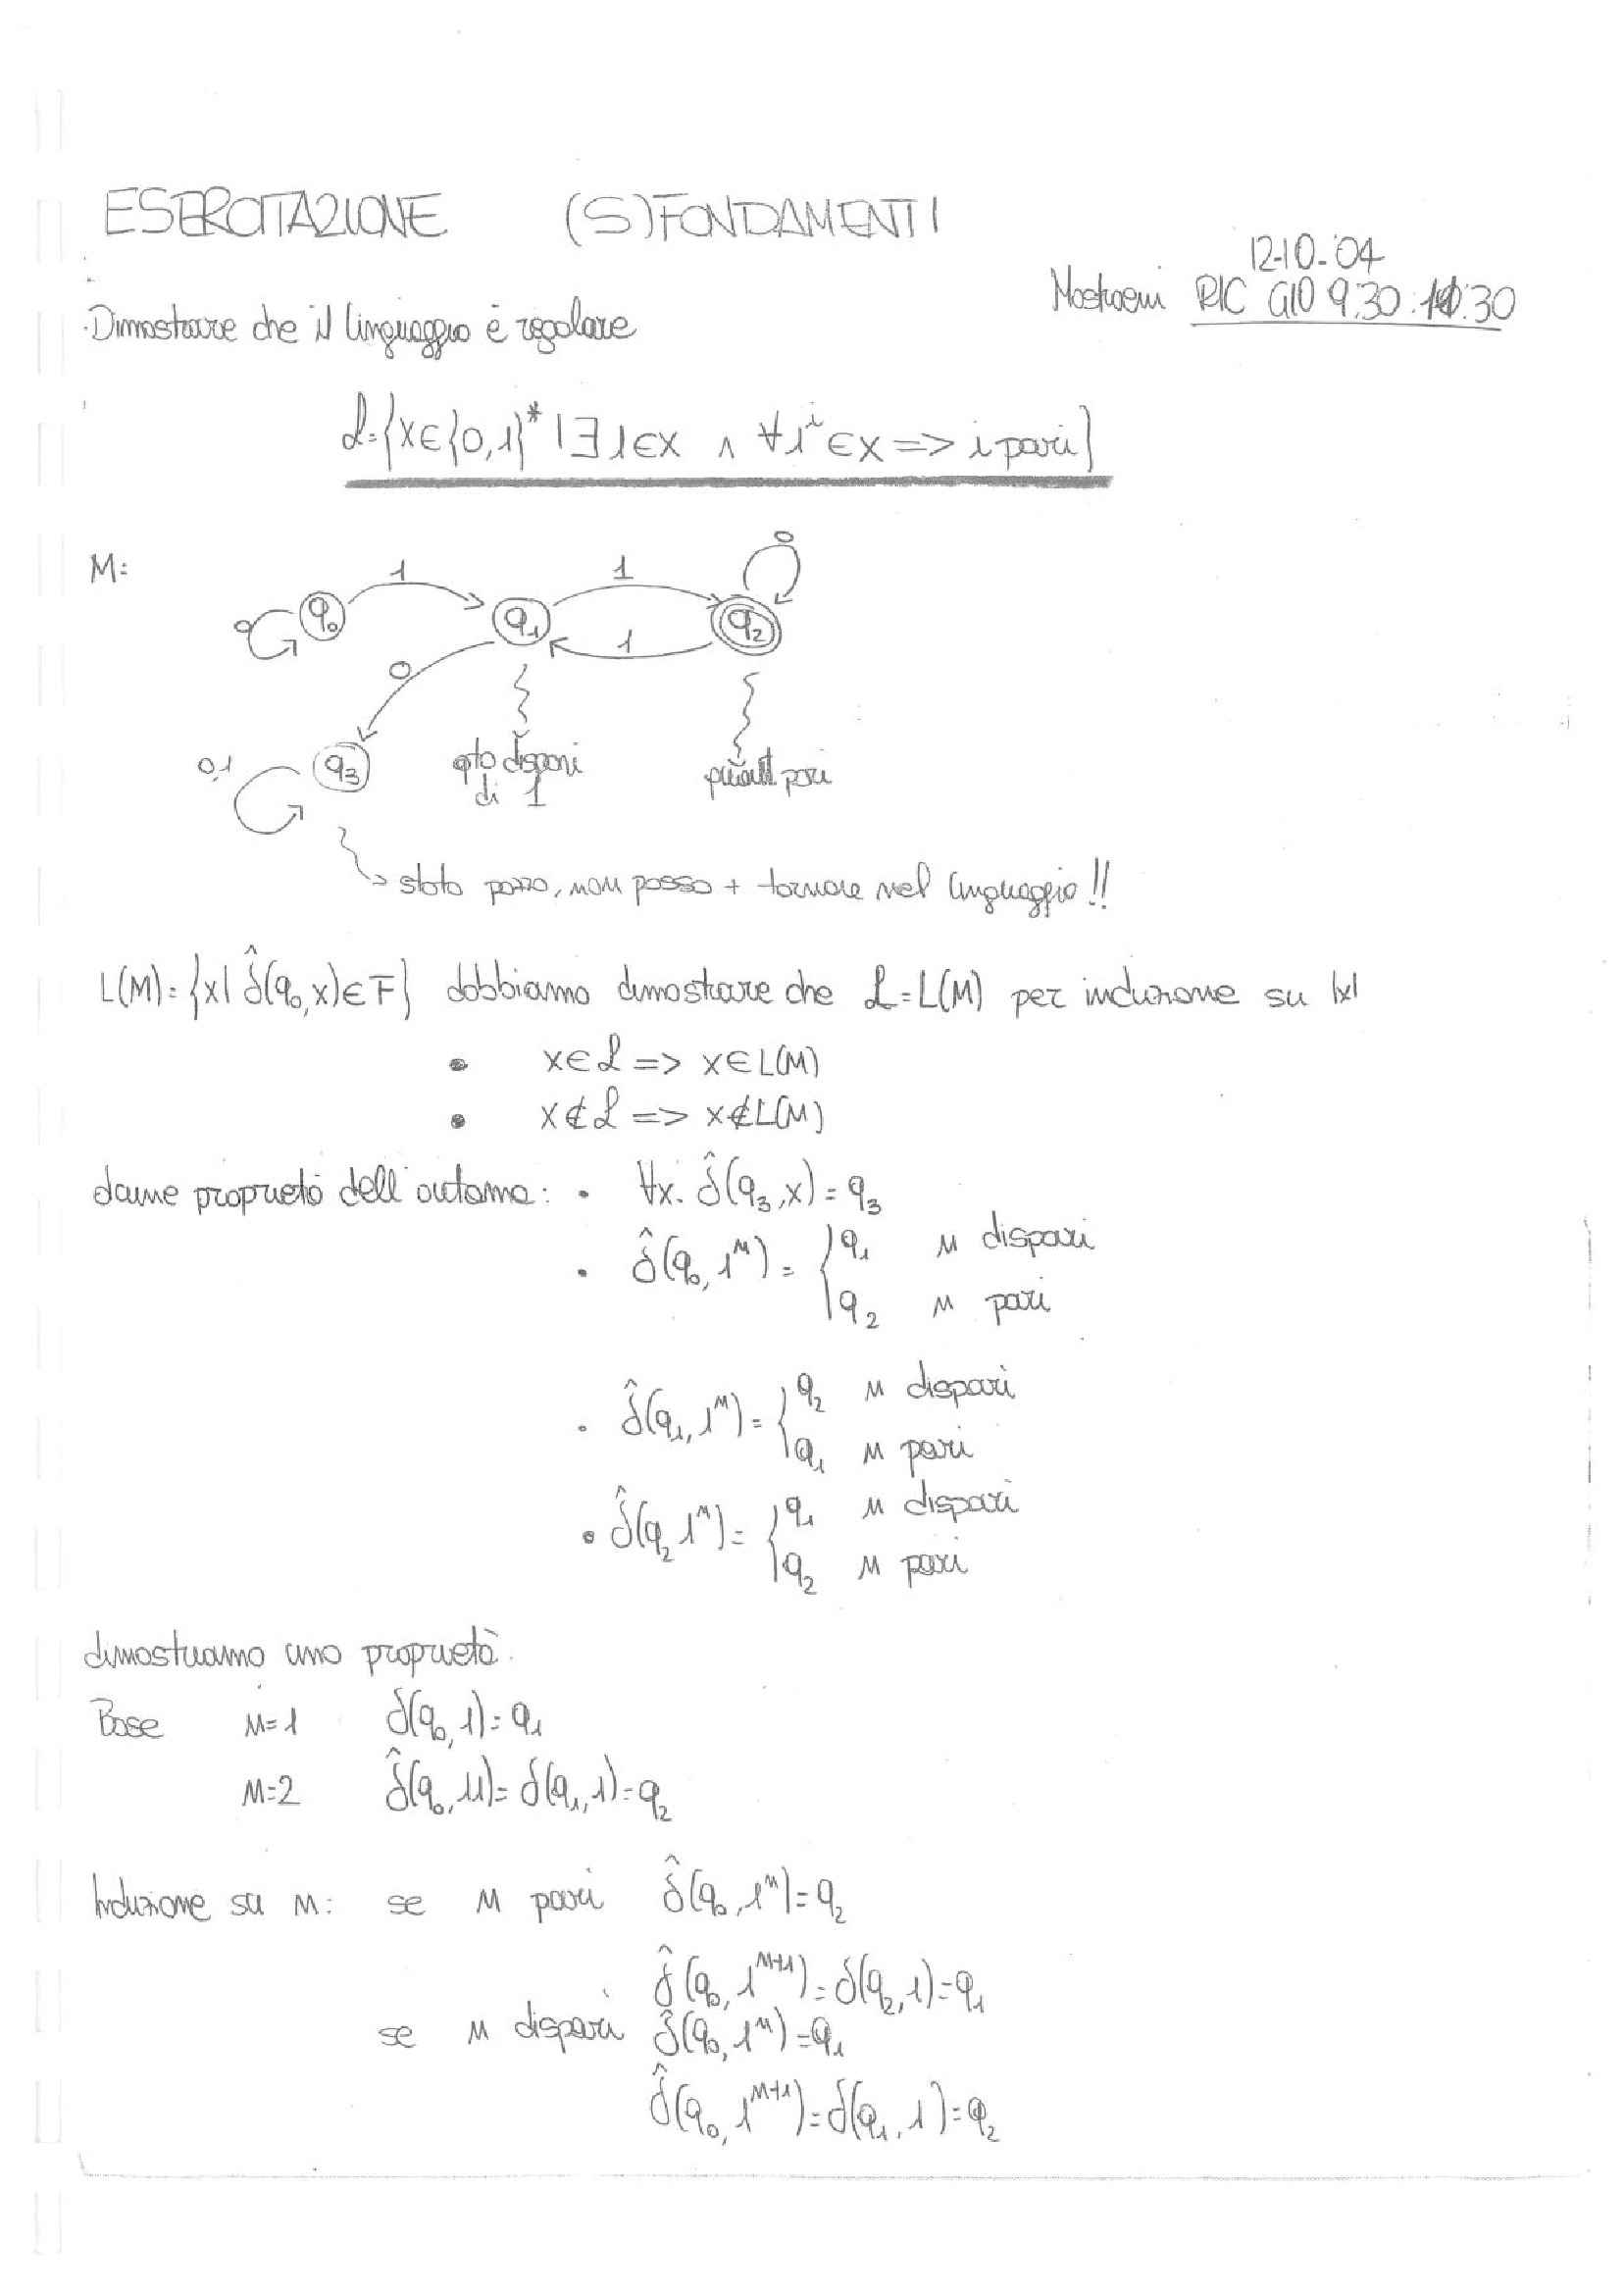 ESERCITAZIONE (S)FONDAMENTI
12-10-'04
RIC GIO 9.30 : 10.30
Dimostrare che il linguaggio è regolare
L={x∈{0,1}* | ∃ 1∈x ∧ ∀1ⁱ∈x => i pari}
M:
0 q₀ 1 q₁ 1 q₂ 0
1
0
0,1 q₃ qto dispari pari
di 1
stato pozzo, non posso + tornare nel linguaggio!!
L(M)={x| δ̂(q₀,x)∈F} dobbiamo dimostrare che L=L(M) per induzione su |x|
• x∈L => x∈L(M)
• x∉L => x∉L(M)
proprietà dell'automa: • ∀x. δ̂(q₃,x)=q₃
• δ̂(q₀,1ⁿ)= { q₁ n dispari
q₂ n pari
• δ̂(q₁,1ⁿ)= { q₂ n dispari
q₁ n pari
• δ̂(q₂ 1ⁿ)= { q₁ n dispari
q₂ n pari
dimostriamo una proprietà.
Base n=1 δ(q₀,1)=q₁
n=2 δ̂(q₀,11)=δ(q₁,1)=q₂
Induzione su n: se n pari δ̂(q₀,1ⁿ)=q₂
δ̂(q₀,1ⁿ⁺¹)=δ(q₂,1)=q₁
se n dispari δ̂(q₀,1ⁿ)=q₁
δ̂(q₀,1ⁿ⁺¹)=δ(q₁,1)=q₂